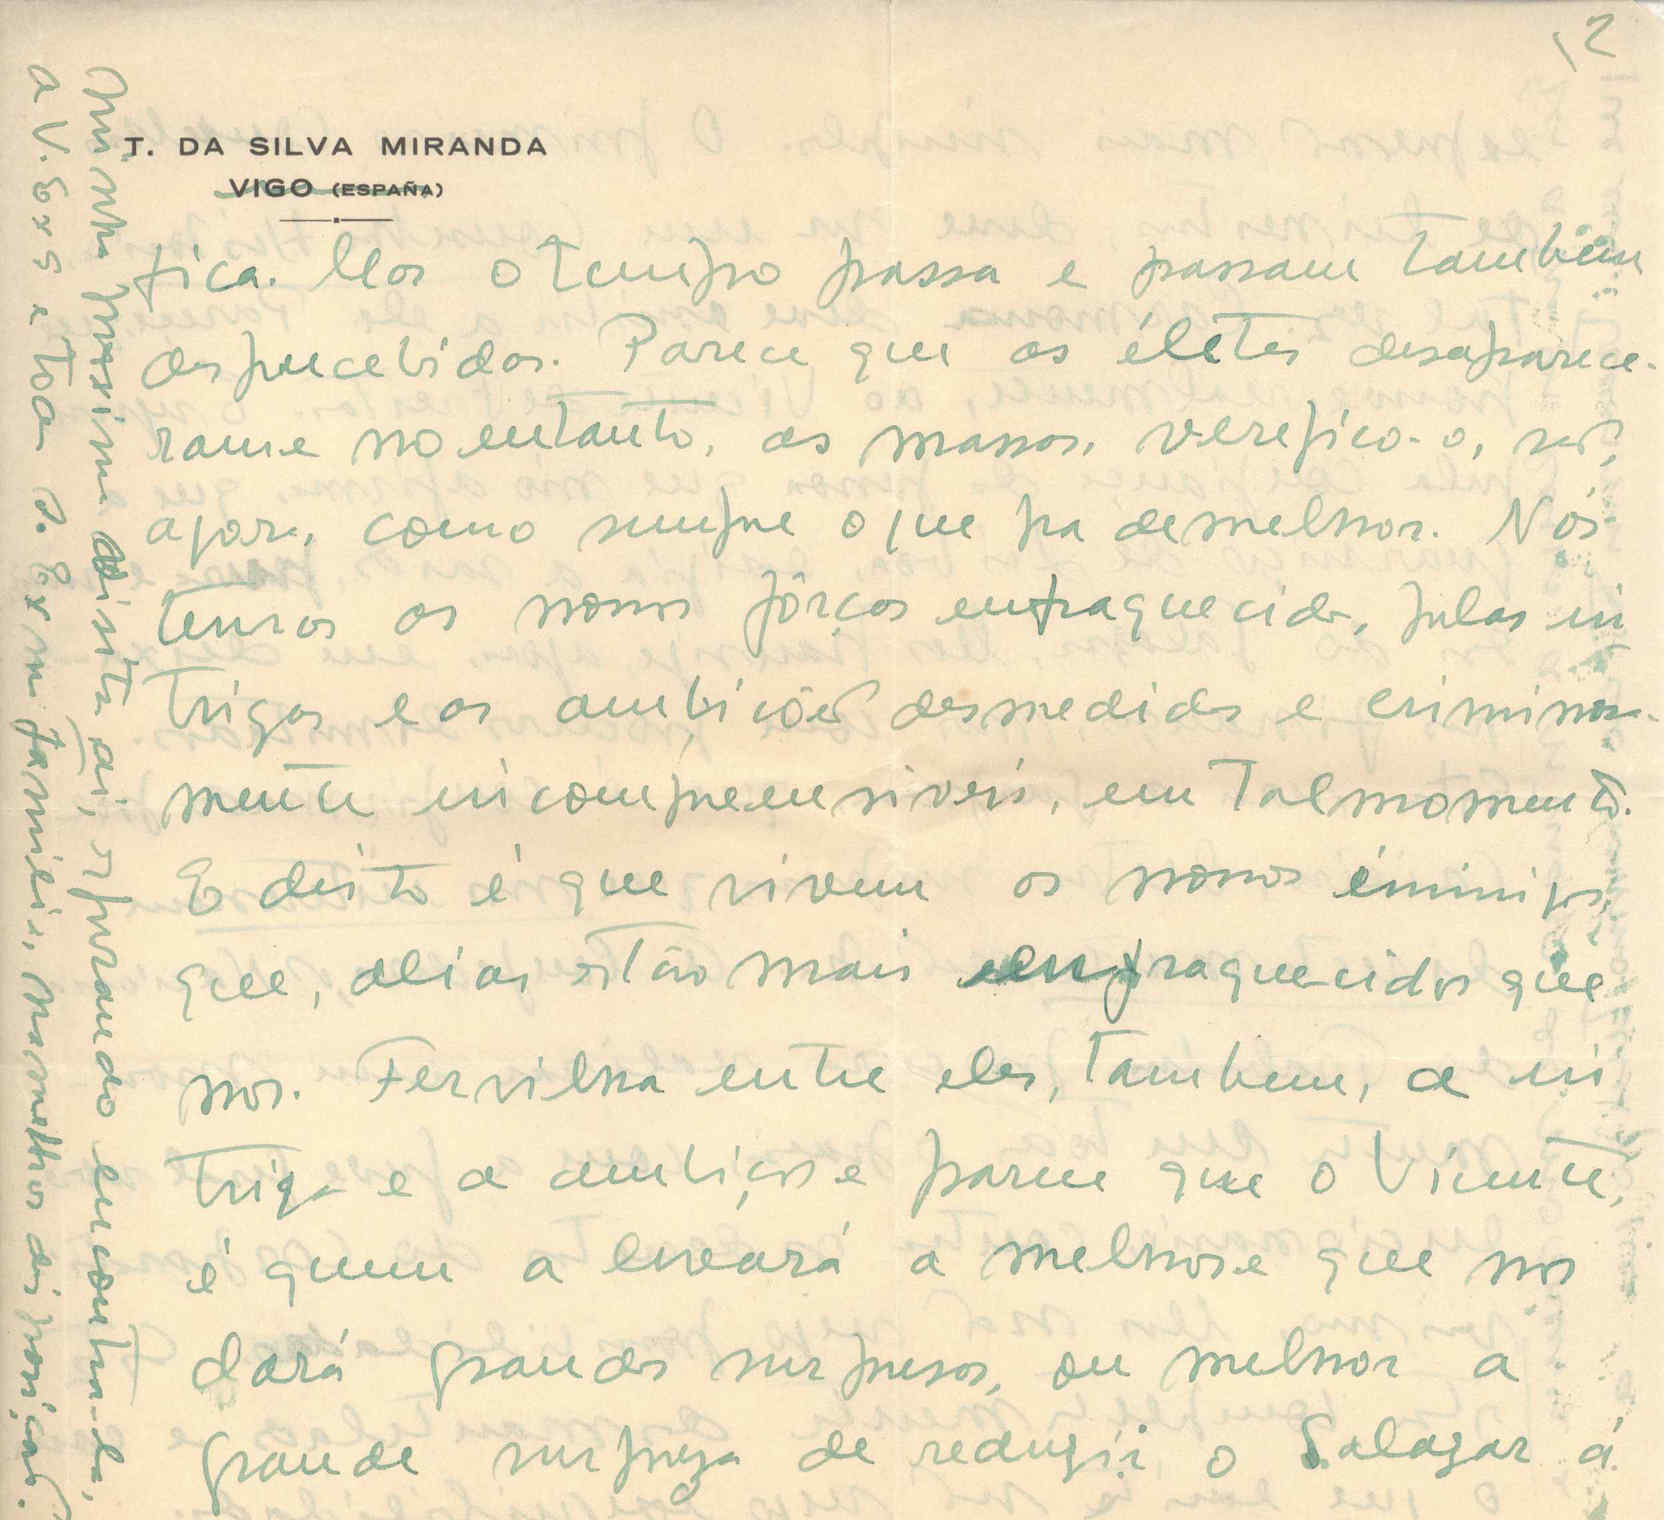 12
T. DA SILVA MIRANDA
VIGO (ESPAÑA)
fica. Mas o tempo passa e passam tambem
despercebidos. Parece que as élites desaparece-
ram e no entanto, as massas, verefico-o, são,
agora, como sempre o que ha de melhor. Nós
temos as nossas fôrças enfraquecidas, pelas in
trigas e as ambições desmedidas e criminosa-
mente incompreensiveis, em tal momento.
E disto é que vivem os nossos énimigos,
que, alias estão mais enfraquecidos que
nos. Fervilha entre eles, tambem, a in
triga e a ambição e parece que o Vicente,
é quem a levará a melhor e que nos
dará grandes surpresas, ou melhor a
grande surpreza de reduzir o Salazar á
minha proxima visita ai, esperando encontra-la,
a V. Exª e toda a Exma familia, na melhor disposição.